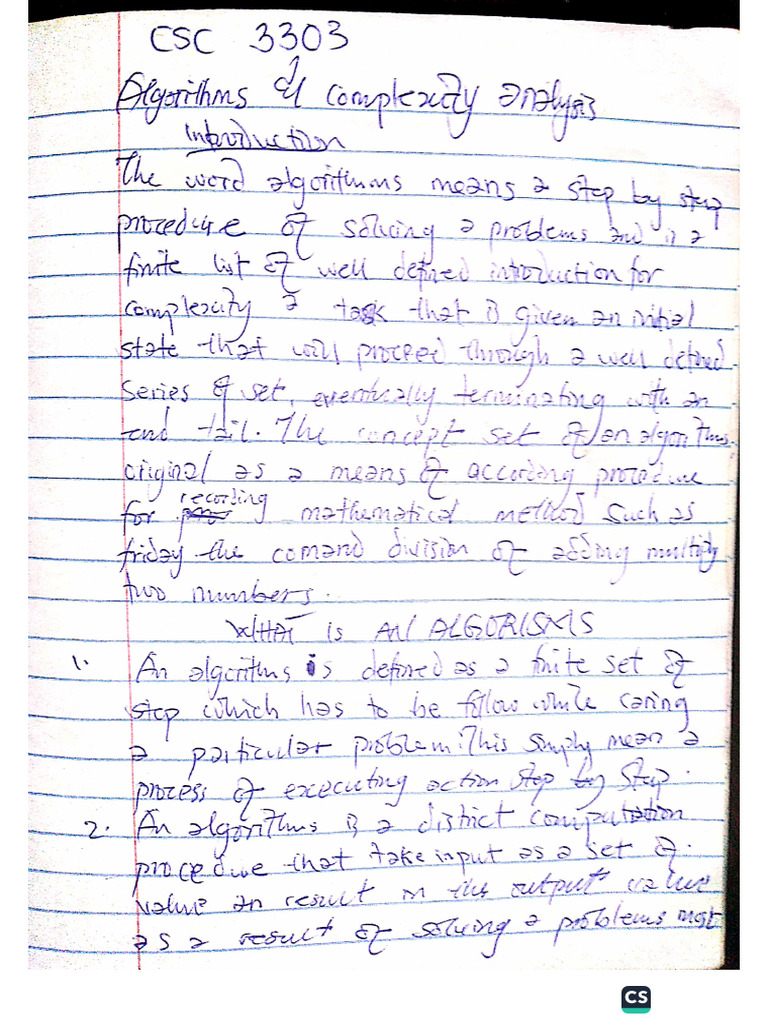 CSC 3303
Algorithms & complexity analysis
introduction
The word algorithms means a step by step
procedure of solving a problems and is a
finite list of well defined introduction for
complexity a task that is given an initial
state that will proceed through a well defined
series of set, eventually terminating with an
end tail. The concept set of an algorithms
original as a means of according procedure
for recording mathematical method such as
friday the comand division of adding multiply
two numbers.
WHAT is AN ALGORISMS
1. An algorithms is defined as a finite set of
step which has to be follow while caring
a particular problem. This simply mean a
process of executing action step by step.
2. An algorithms is a district computation
procedure that take input as a set of
value an result in the output value
as a result of solving a problems most
CS